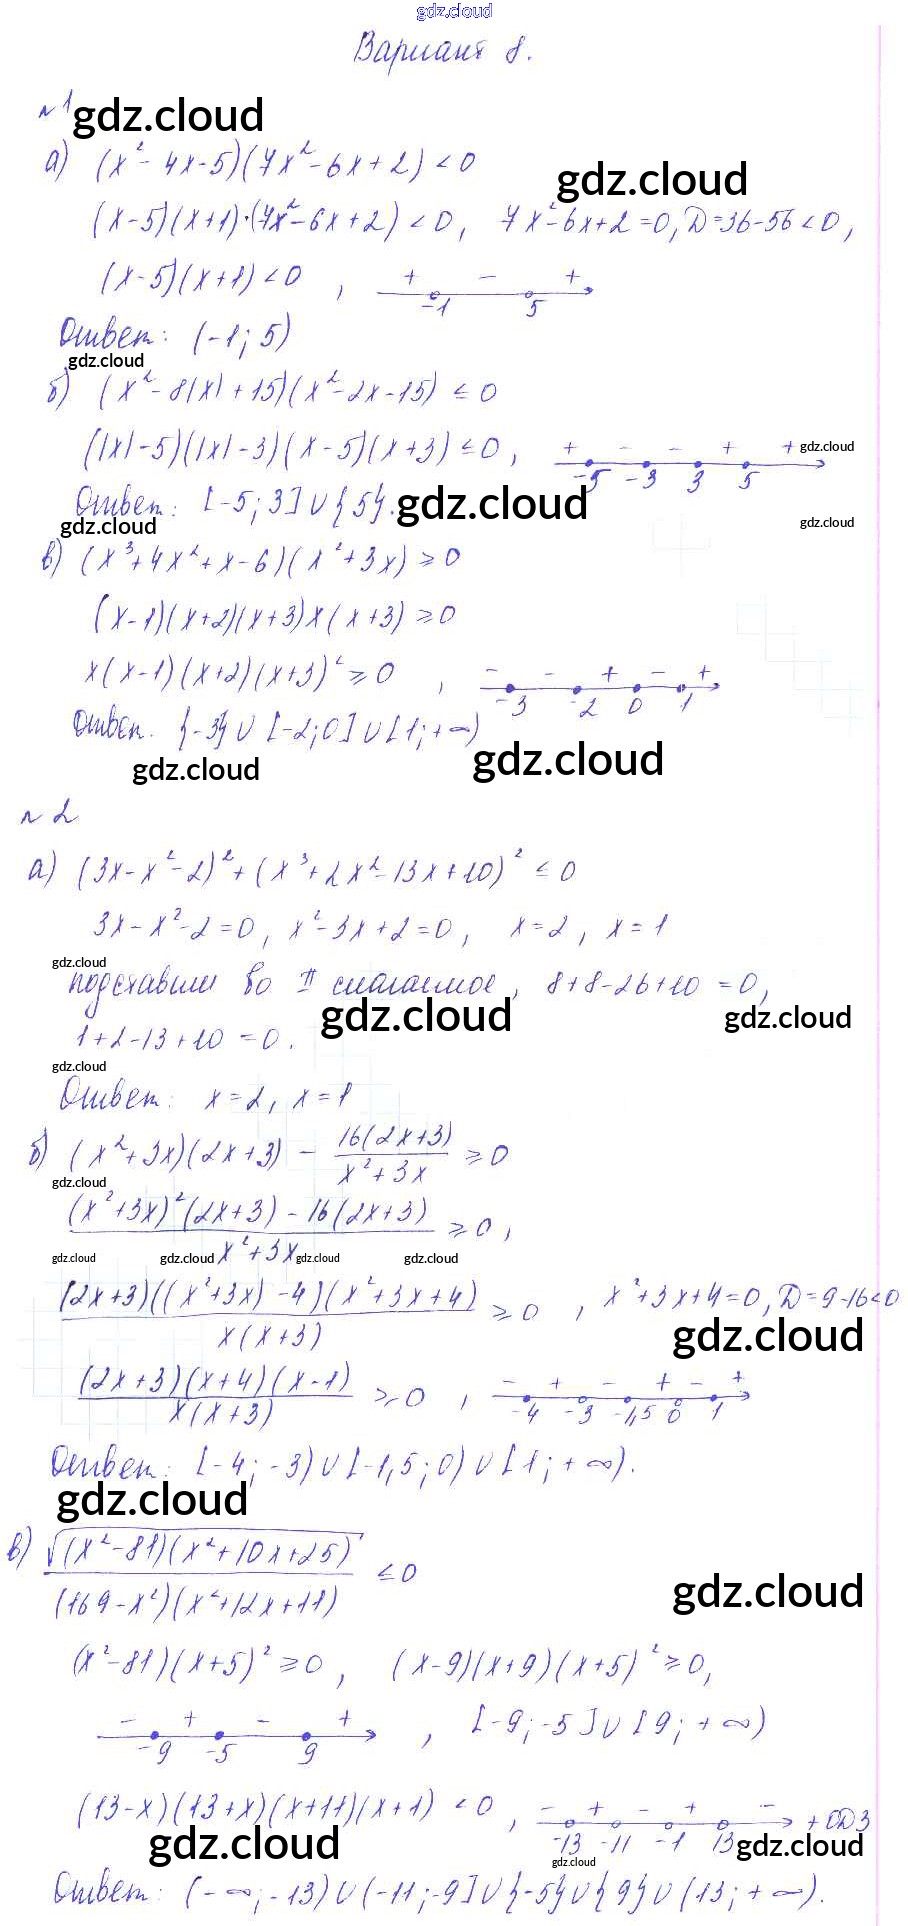 gdz.cloud
Вариант 8.
№1 gdz.cloud
а) (x² - 4x - 5)(7x² - 6x + 2) < 0
gdz.cloud
(x-5)(x+1)·(7x² - 6x + 2) < 0, 7x² - 6x + 2 = 0, D = 36 - 56 < 0,
(x-5)(x+1) < 0 , + - +
-1 5
Ответ: (-1; 5)
gdz.cloud
б) (x² - 8|x| + 15)(x² - 2x - 15) ≤ 0
(|x| - 5)(|x| - 3)(x - 5)(x + 3) ≤ 0, + - - + + gdz.cloud
-5 -3 3 5
Ответ: [-5; 3] ∪ {5}. gdz.cloud
gdz.cloud gdz.cloud
в) (x³ + 4x² + x - 6)(x² + 3x) ≥ 0
(x-1)(x+2)(x+3)x(x+3) ≥ 0
x(x-1)(x+2)(x+3)² ≥ 0 , - - + - +
-3 -2 0 1
Ответ. {-3} ∪ [-2; 0] ∪ [1; +∞)
gdz.cloud gdz.cloud
№2
а) (3x - x² - 2)² + (x³ + 2x² - 13x + 10)² ≤ 0
3x - x² - 2 = 0, x² - 3x + 2 = 0, x = 2, x = 1
gdz.cloud
подставим во II слагаемое, 8 + 8 - 26 + 10 = 0,
gdz.cloud gdz.cloud
1 + 2 - 13 + 10 = 0.
gdz.cloud
Ответ: x = 2, x = 1
б) (x² + 3x)(2x + 3) - 16(2x+3)/(x² + 3x) ≥ 0
gdz.cloud
((x² + 3x)²(2x + 3) - 16(2x + 3))/(x² + 3x) ≥ 0,
gdz.cloud gdz.cloud gdz.cloud gdz.cloud
(2x+3)((x² + 3x) - 4)(x² + 3x + 4)/(x(x+3)) ≥ 0 , x² + 3x + 4 = 0, D = 9 - 16 < 0
gdz.cloud
(2x+3)(x+4)(x-1)/(x(x+3)) ≥ 0 , - + - + - +
-4 -3 -1,5 0 1
Ответ: [-4; -3) ∪ [-1,5; 0) ∪ [1; +∞).
gdz.cloud
в) √((x² - 81)(x² + 10x + 25))/((169 - x²)(x² + 12x + 11)) ≤ 0
gdz.cloud
(x² - 81)(x + 5)² ≥ 0, (x - 9)(x + 9)(x + 5)² ≥ 0,
- + - + , [-9; -5] ∪ [9; +∞)
-9 -5 9
(13 - x)(13 + x)(x + 11)(x + 1) < 0 , - + - + - + ОДЗ
-13 -11 -1 13
gdz.cloud gdz.cloud gdz.cloud
Ответ: (-∞; -13) ∪ (-11; -9] ∪ {-5} ∪ {9} ∪ (13; +∞).